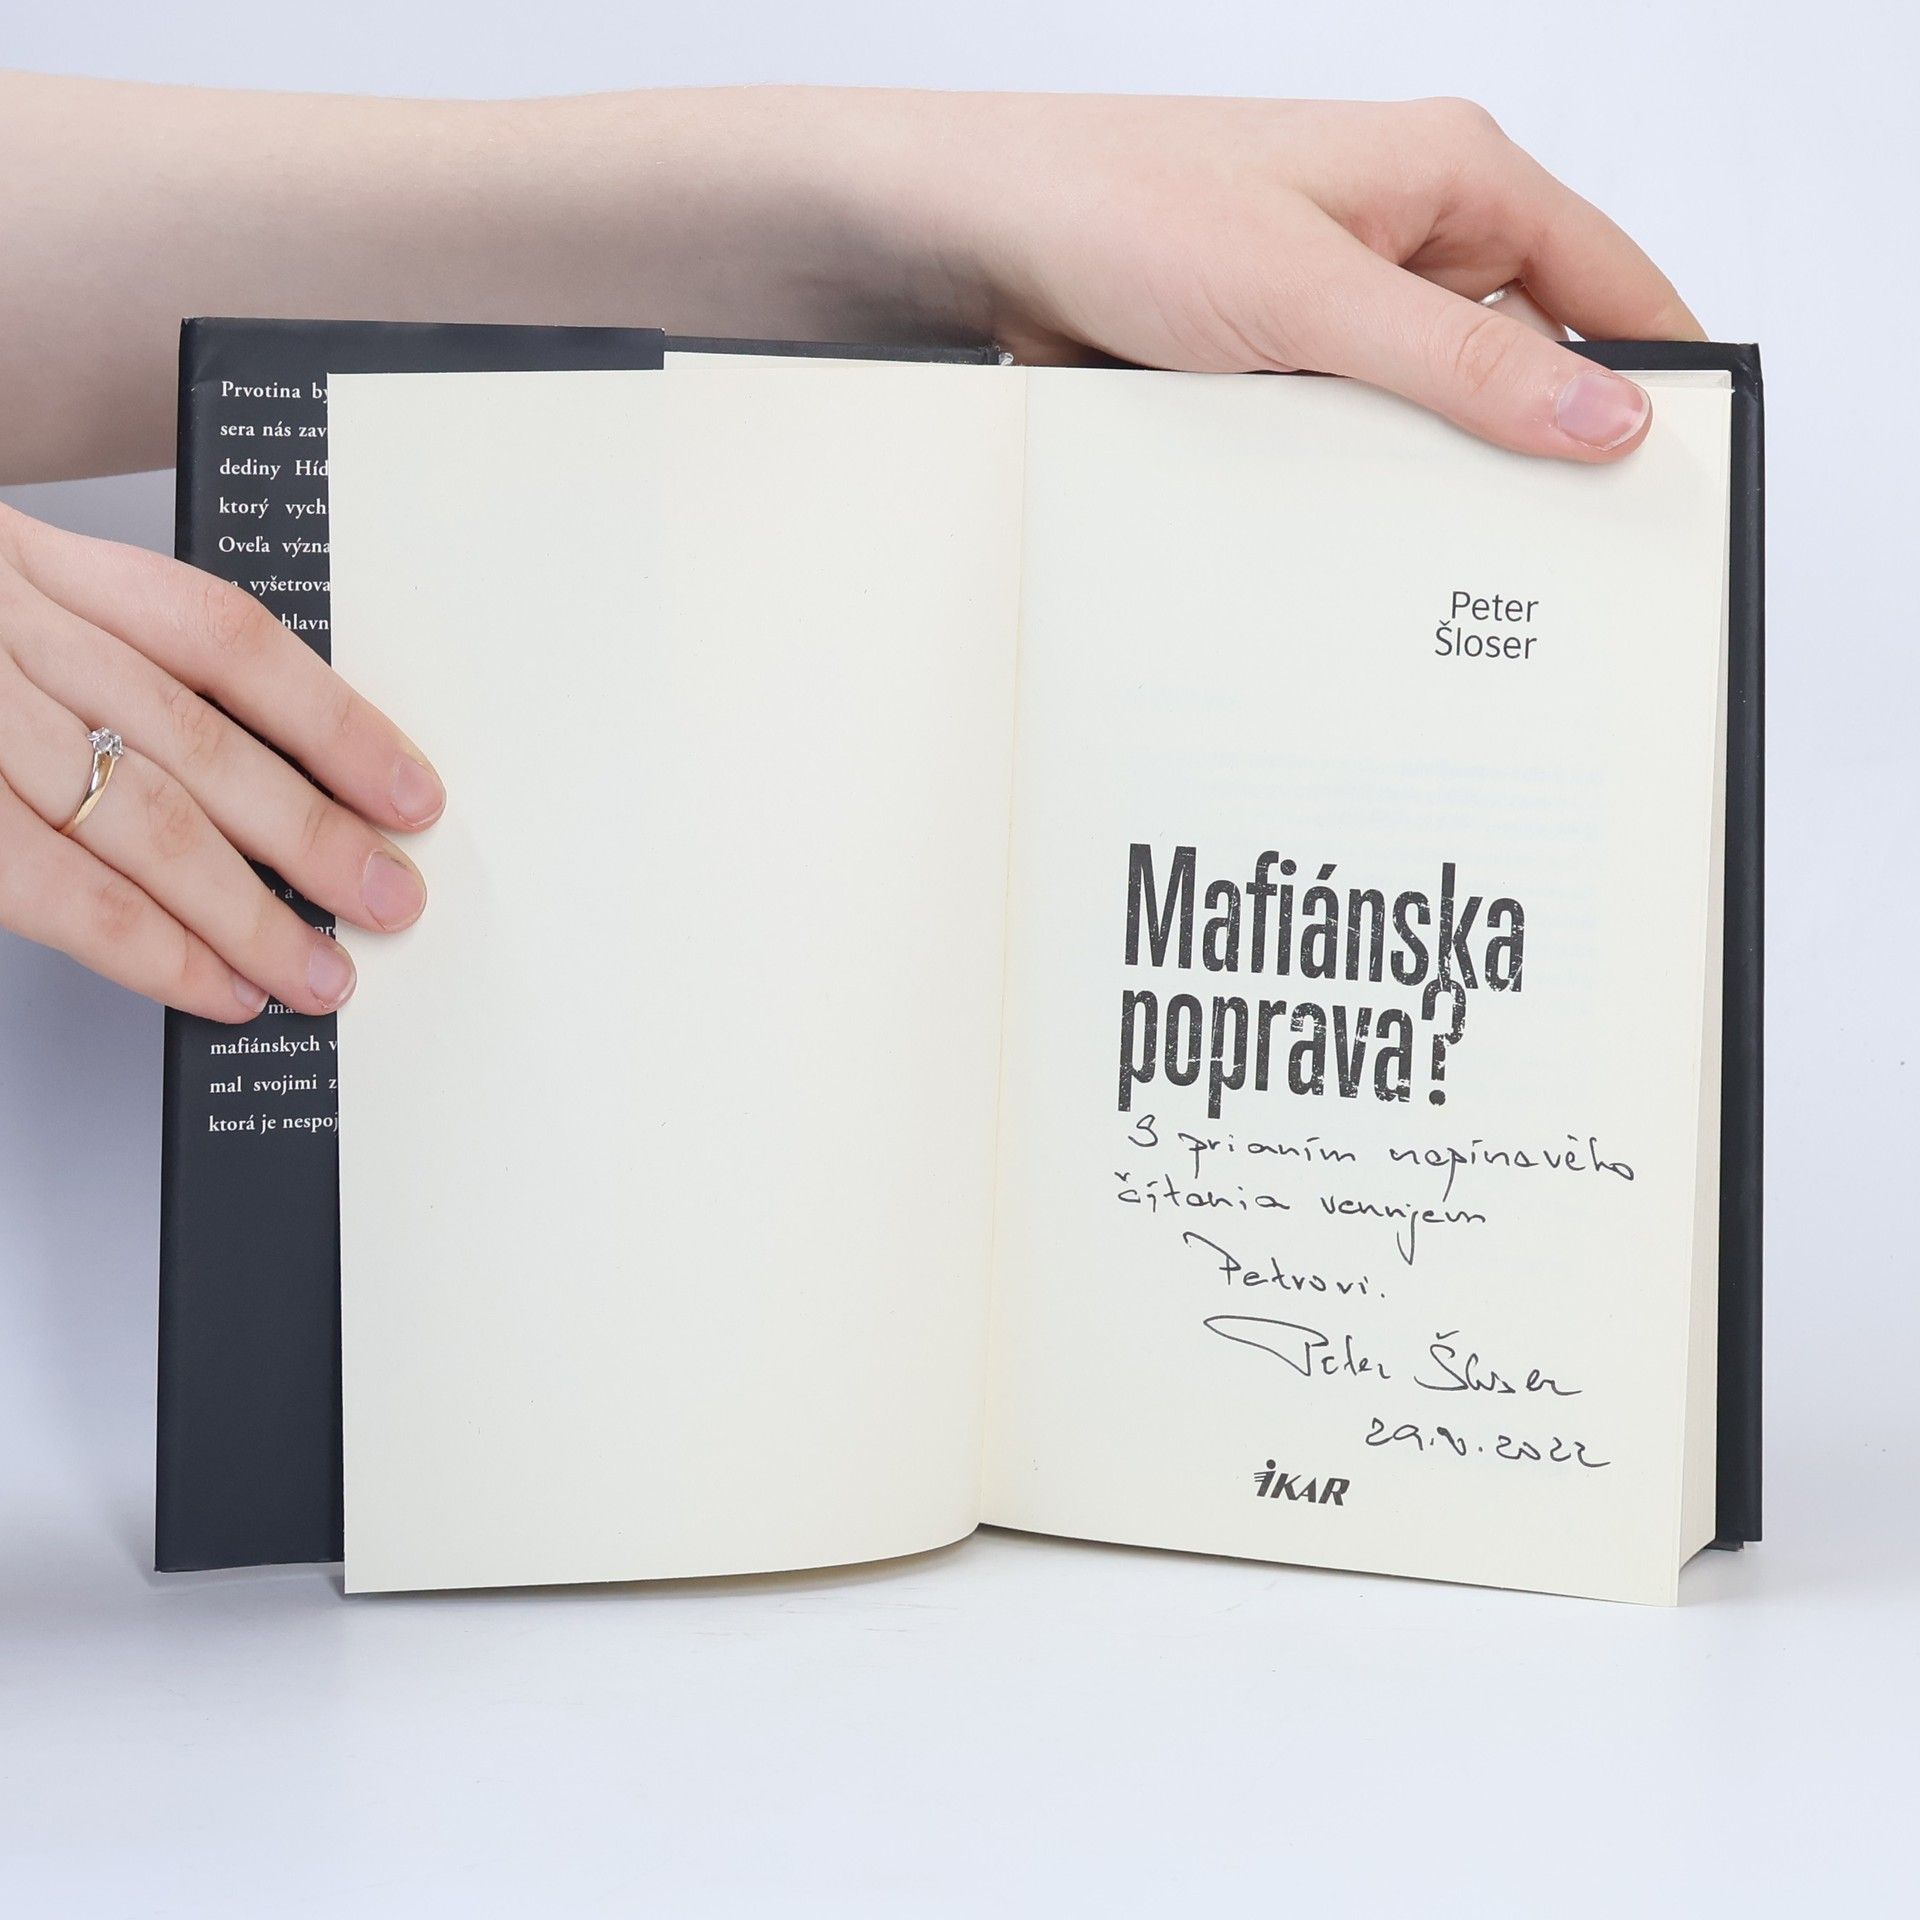 Prvotina by
sera nás zav
dediny Híd
ktorý vych
Oveľa význa
vyšetrova
hlavn
u a
pro
ma
mafiánskych v
mal svojimi z
ktorá je nespoj
Peter
Šloser
Mafiánska
poprava?
S prianím napínavého
čítania venujem
Petrovi.
Peter Šloser
29.V.2022
iKAR